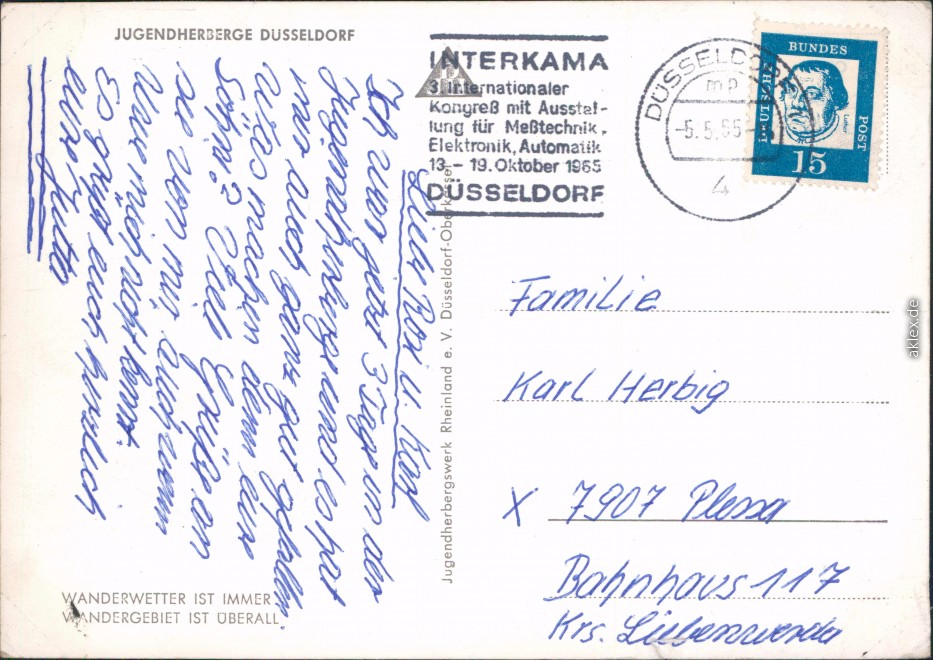 JUGENDHERBERGE DÜSSELDORF
INTERKAMA
3. Internationaler
Kongreß mit Ausstel-
lung für Meßtechnik,
Elektronik, Automatik
13.– 19. Oktober 1965
DÜSSELDORF
DÜSSELDORF
mp
-5.5.65-
4
DEUTSCHE
BUNDES
POST
Luther
15
Liebe Rosi u. Karl
Ich war jetzt 3 Tage in der
Jugendherberge und es hat
mir auch ganz gut gefallen.
Was machen denn eure
Söhne? Viel Grüße an
sie von mir, auch wenn
mich nicht kennt.
So grüßt euch herzlich
eure Jutta
Jugendherbergswerk Rheinland e. V. Düsseldorf-Oberkassel
Familie
Karl Herbig
X 7907 Plessa
Bahnhaus 117
Krs. Liebenwerda
WANDERWETTER IST IMMER
WANDERGEBIET IST ÜBERALL
aklex.de